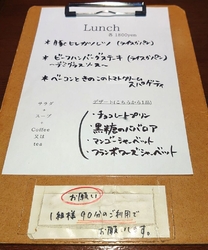 Lunch
＊ビーフハンバグステーキ(ライスかパン)
～デミグラスソース～
＊ベーコンときのこのトマトクリームスパゲティ
サラダ
＋
スープ
＋
Coffee
又は
tea
デザート(こちらから1品)
・チョコレートプリン
・黒糖のババロア
・マンゴーシャーベット
・フランボワーズシャーベット
お願い
1組様90分のご利用で
お願いします。